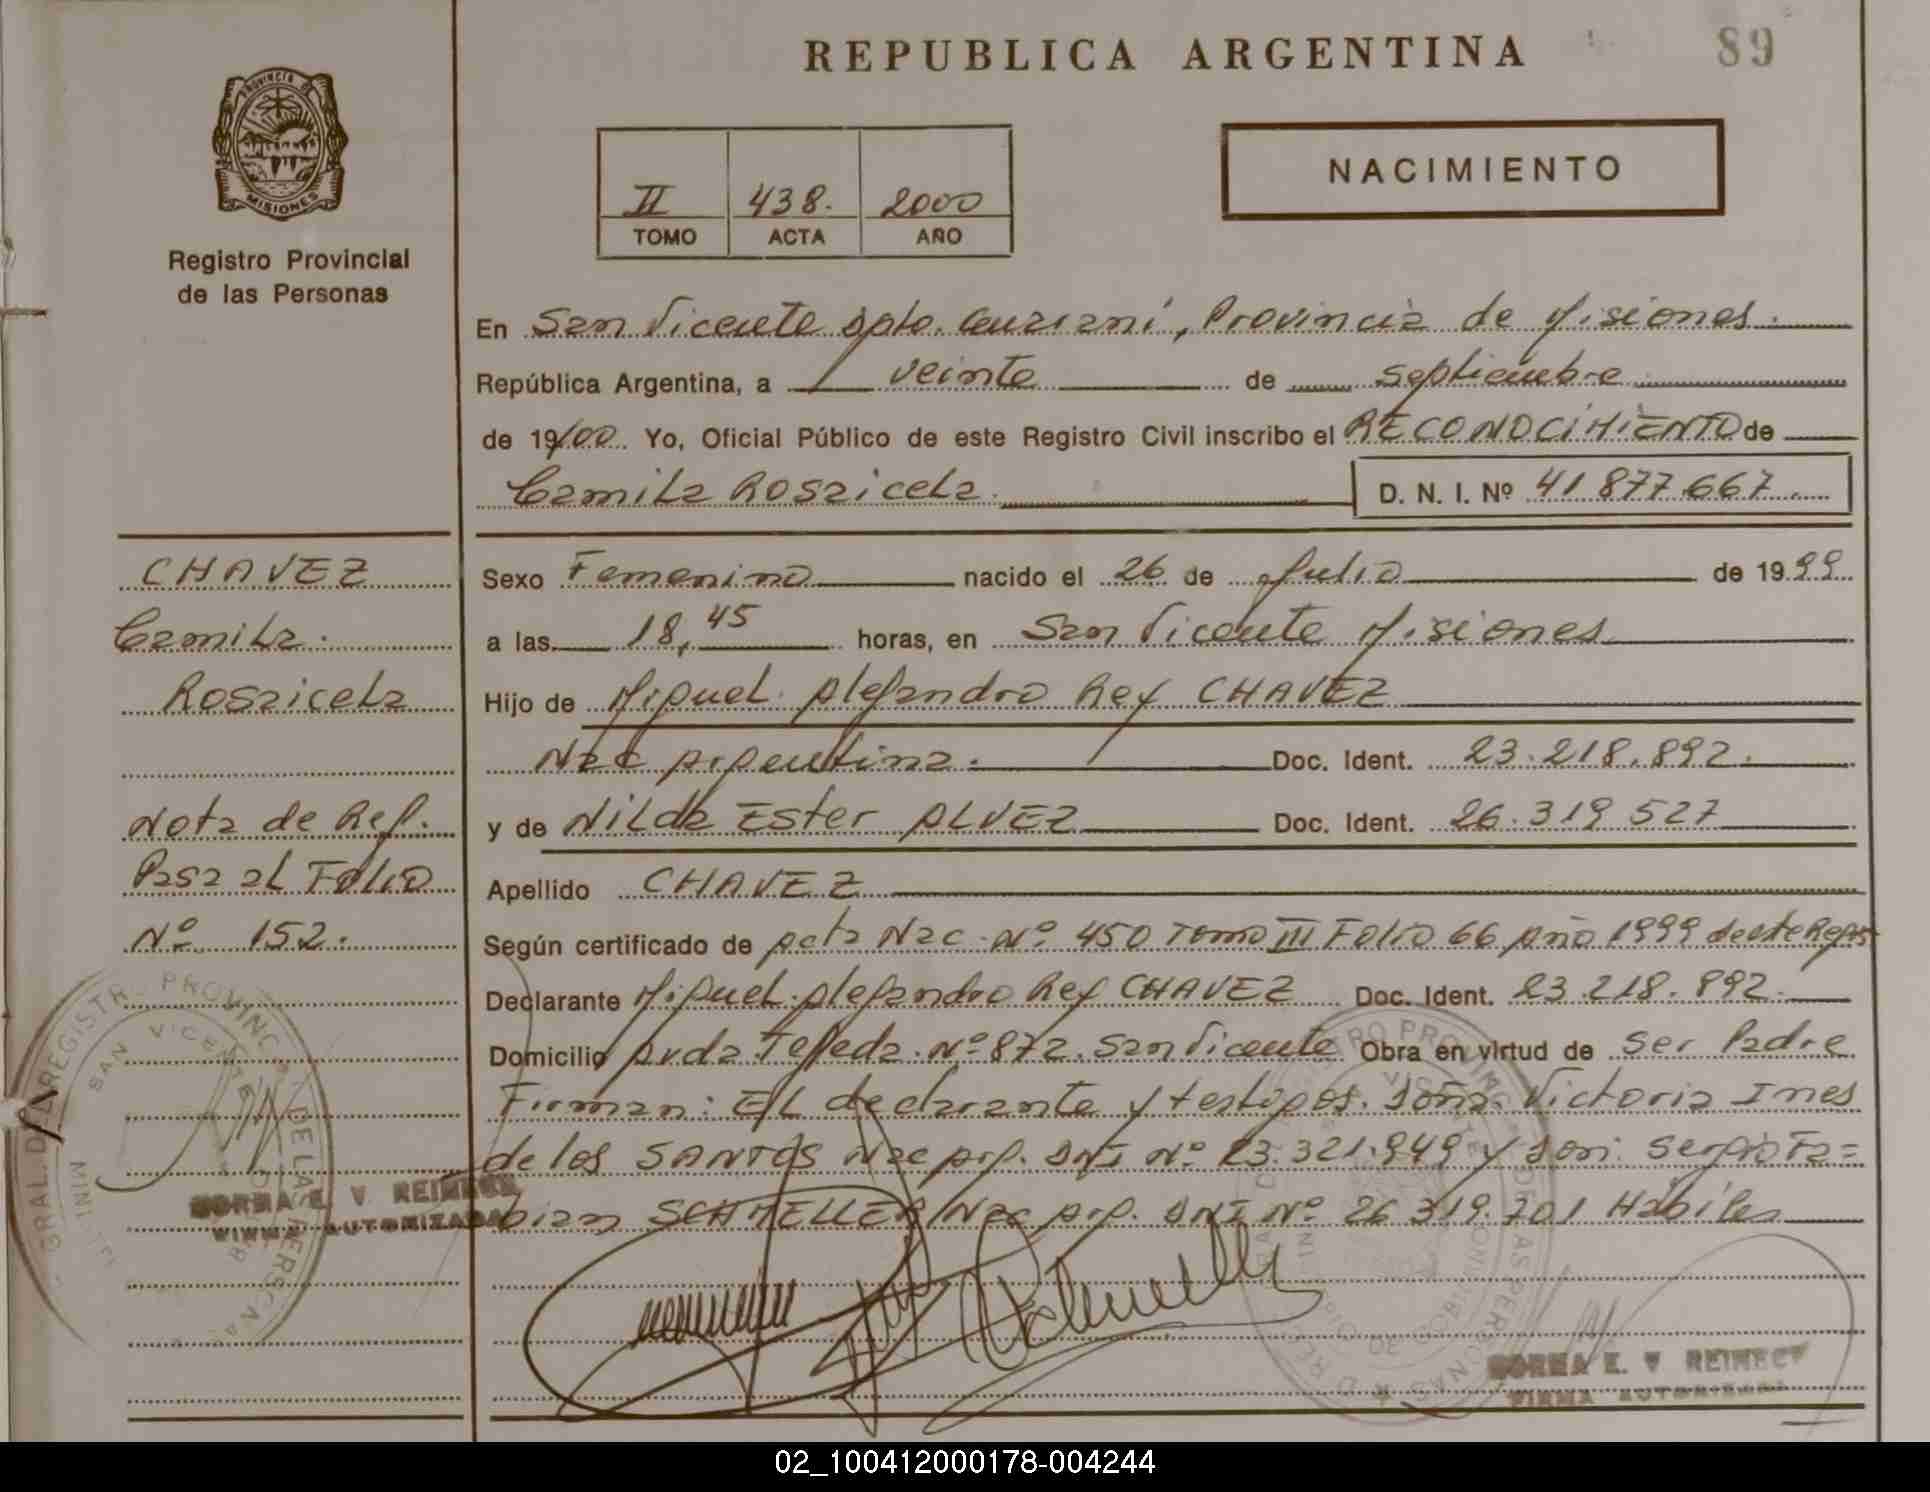 REPUBLICA ARGENTINA
89
PROVINCIA DE
MISIONES
Registro Provincial
de las Personas
II 438. 2000
TOMO ACTA AÑO
NACIMIENTO
En San Vicente Dpto. Guaraní, Provincia de Misiones.
República Argentina, a veinte de Septiembre
de 19/00. Yo, Oficial Público de este Registro Civil inscribo el RECONOCIMIENTO de
Camila Rosaicela. D. N. I. Nº 41.877.667
CHAVEZ
Camila.
Rosaicela
Nota de Ref.
Pasa al Folio
Nº 152.
Sexo Femenino nacido el 26 de Julio de 1999
a las 18,45 horas, en San Vicente Misiones
Hijo de Miguel Alejandro Rey CHAVEZ
Nac Argentina. Doc. Ident. 23.218.892.
y de Nilda Ester ALVEZ Doc. Ident. 26.319.527
Apellido CHAVEZ
Según certificado de Acta Nac. Nº 450 Tomo III Folio 66 Año 1999 deste
Declarante Miguel Alejandro Rey CHAVEZ Doc. Ident. 23.218.892.
Domicilio Avda. Tejeda. Nº 872. San Vicente Obra en virtud de Ser Padre
Firman: El declarante y testigos. Doña Victoria Ines
de los SANTOS Nac Arg. DNI Nº 23.321.949 y Don. Sergio Fa=
bian SCHMELLER Nac Arg. DNI Nº 26.319.701 Hábiles
NORMA E. V REINECK
FIRMA AUTORIZADA
NORMA E. V REINECK
FIRMA AUTORIZADA
02_100412000178-004244